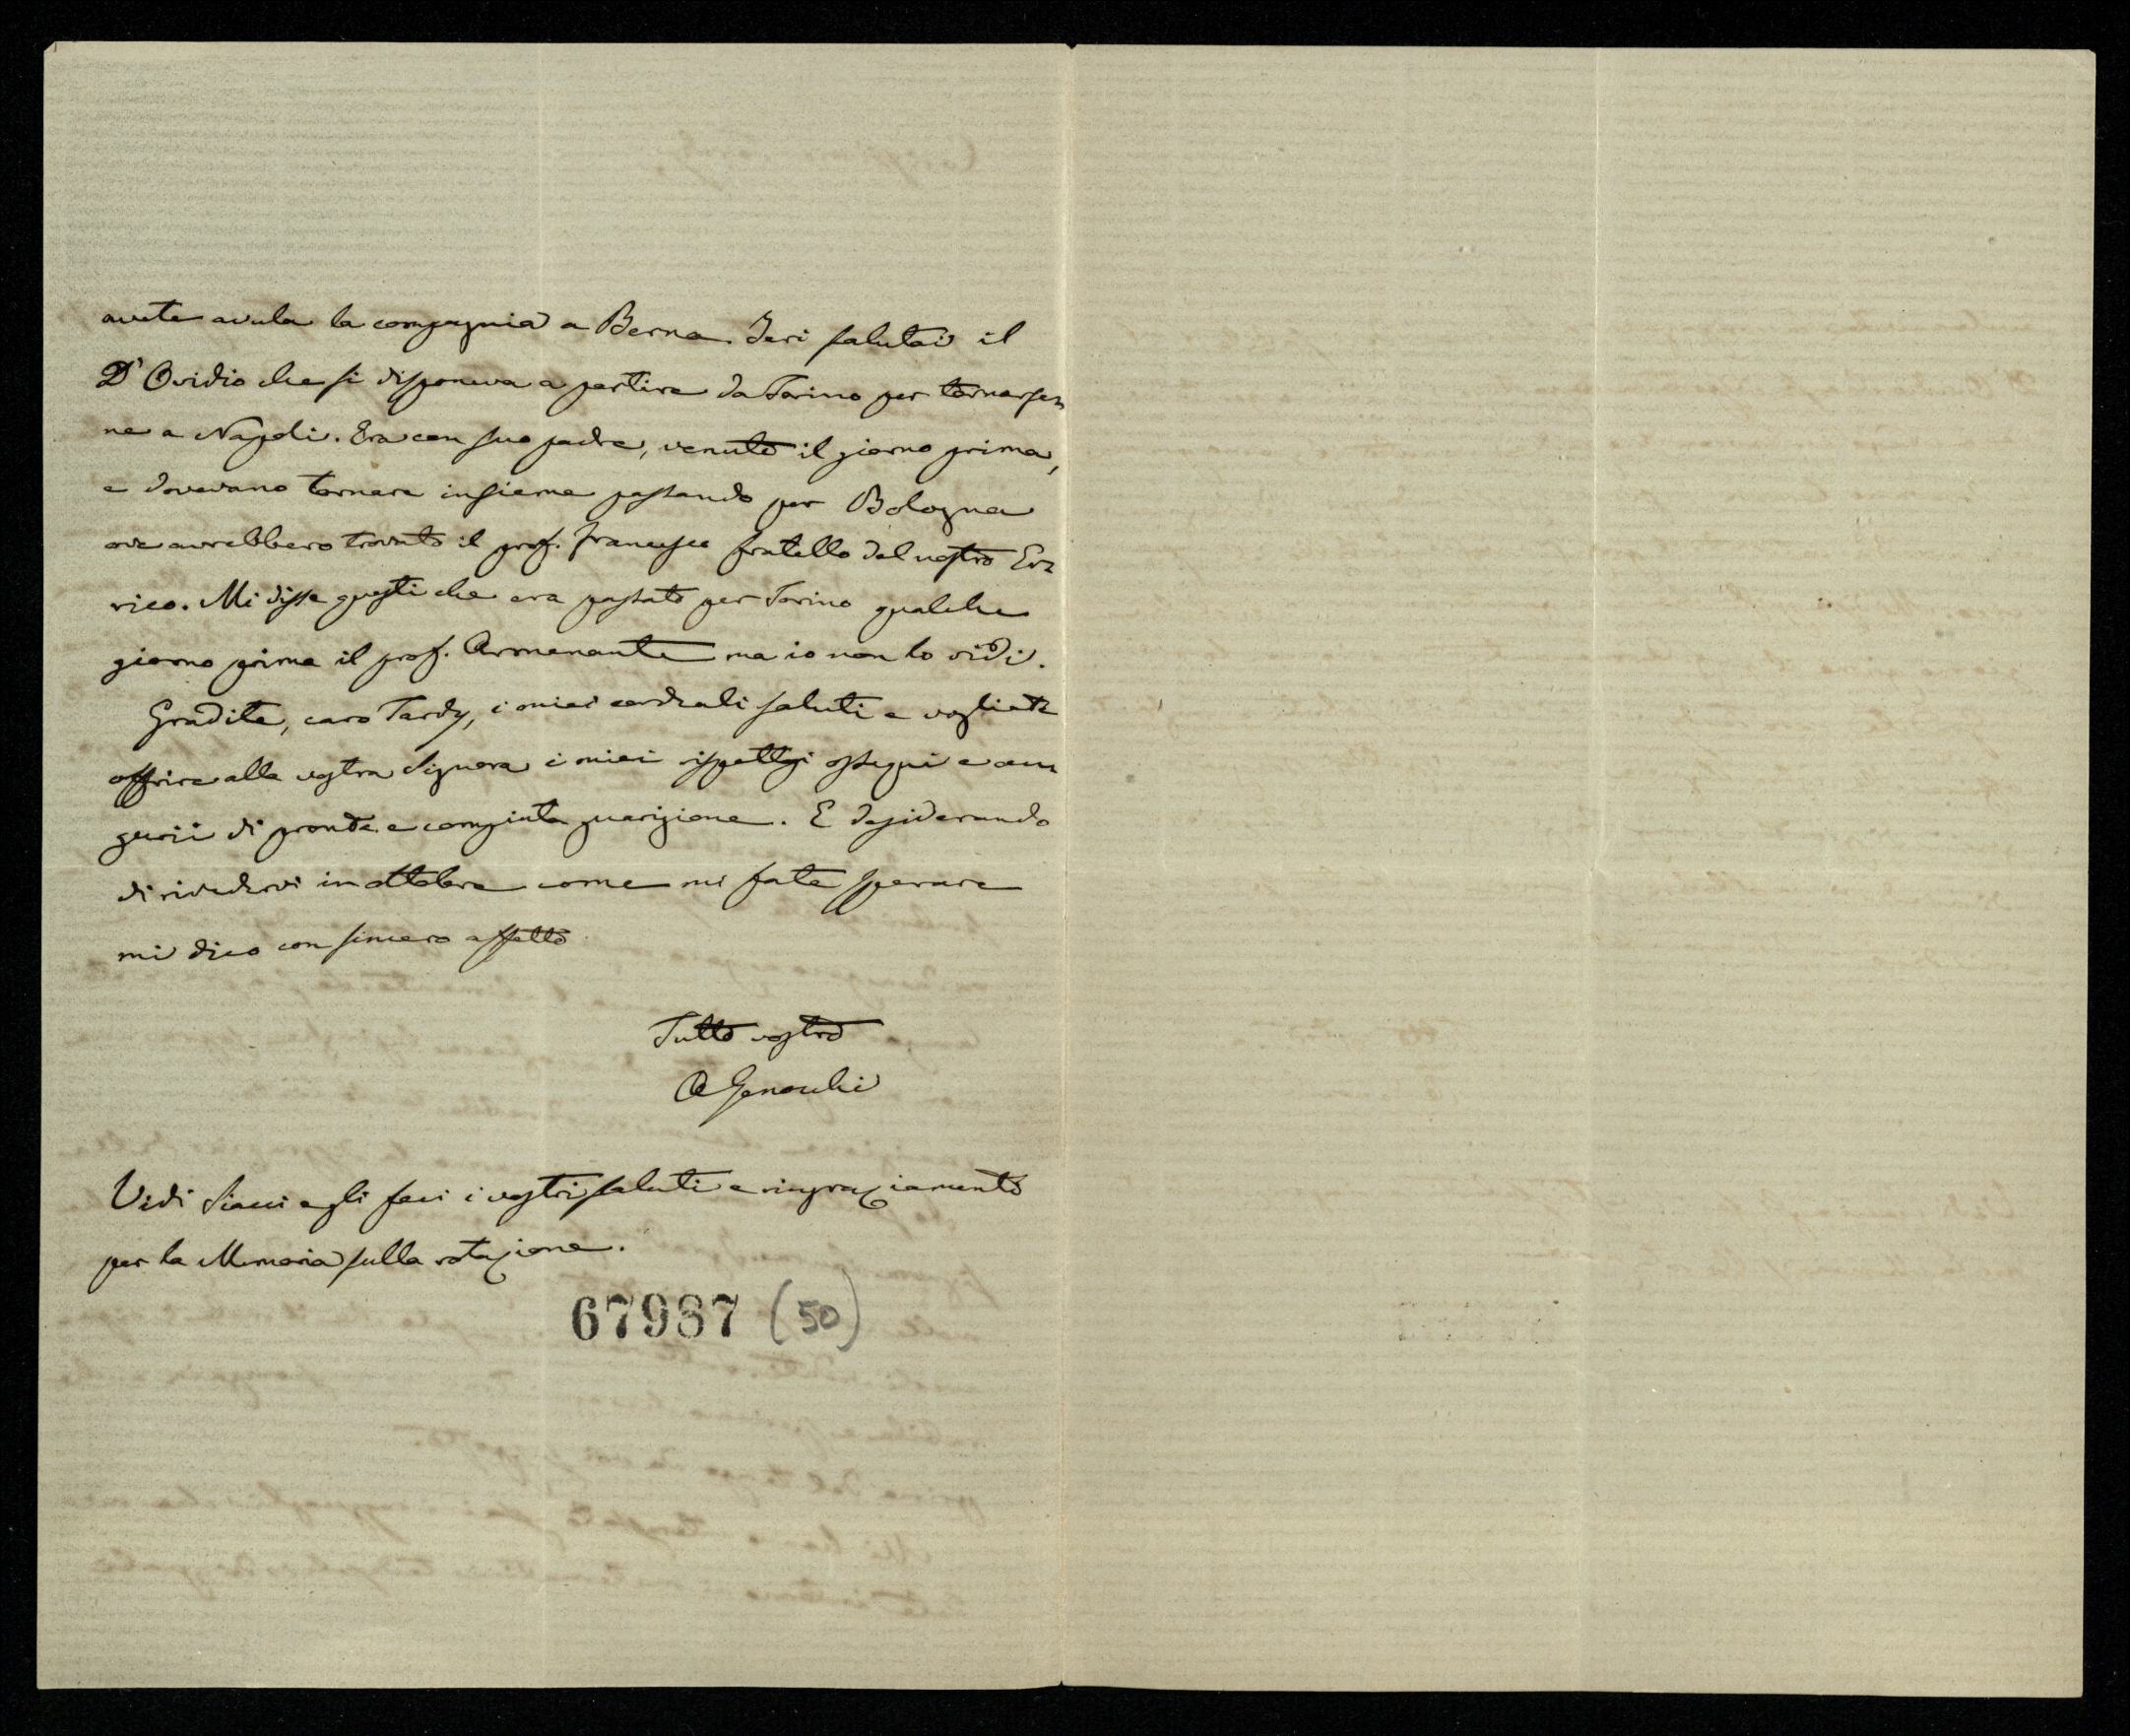 avete avuta la compagnia a Berna. Ieri salutai il
D'Ovidio che si disponeva a partire da Torino per tornarse-
ne a Napoli. Era con suo padre, venuto il giorno prima,
e dovevano tornare insieme passando per Bologna
ove avrebbero trovato il prof. Francesco fratello del nostro En-
rico. Mi disse questi che era passato per Torino qualche
giorno prima il prof. Armenante ma io non lo vidi.
Gradite, caro Tardy, i miei cordiali saluti e vogliate
offrire alla vostra Signora i miei rispettosi ossequi e au-
gurii di pronta e compiuta guarigione. E desiderando
di rivedervi in ottobre come mi fate sperare
mi dico con sincero affetto
Tutto vostro
A Genocchi
Vidi Siacci e gli feci i vostri saluti e ringraziamento
per la Memoria sulla rotazione.
67987 (50)